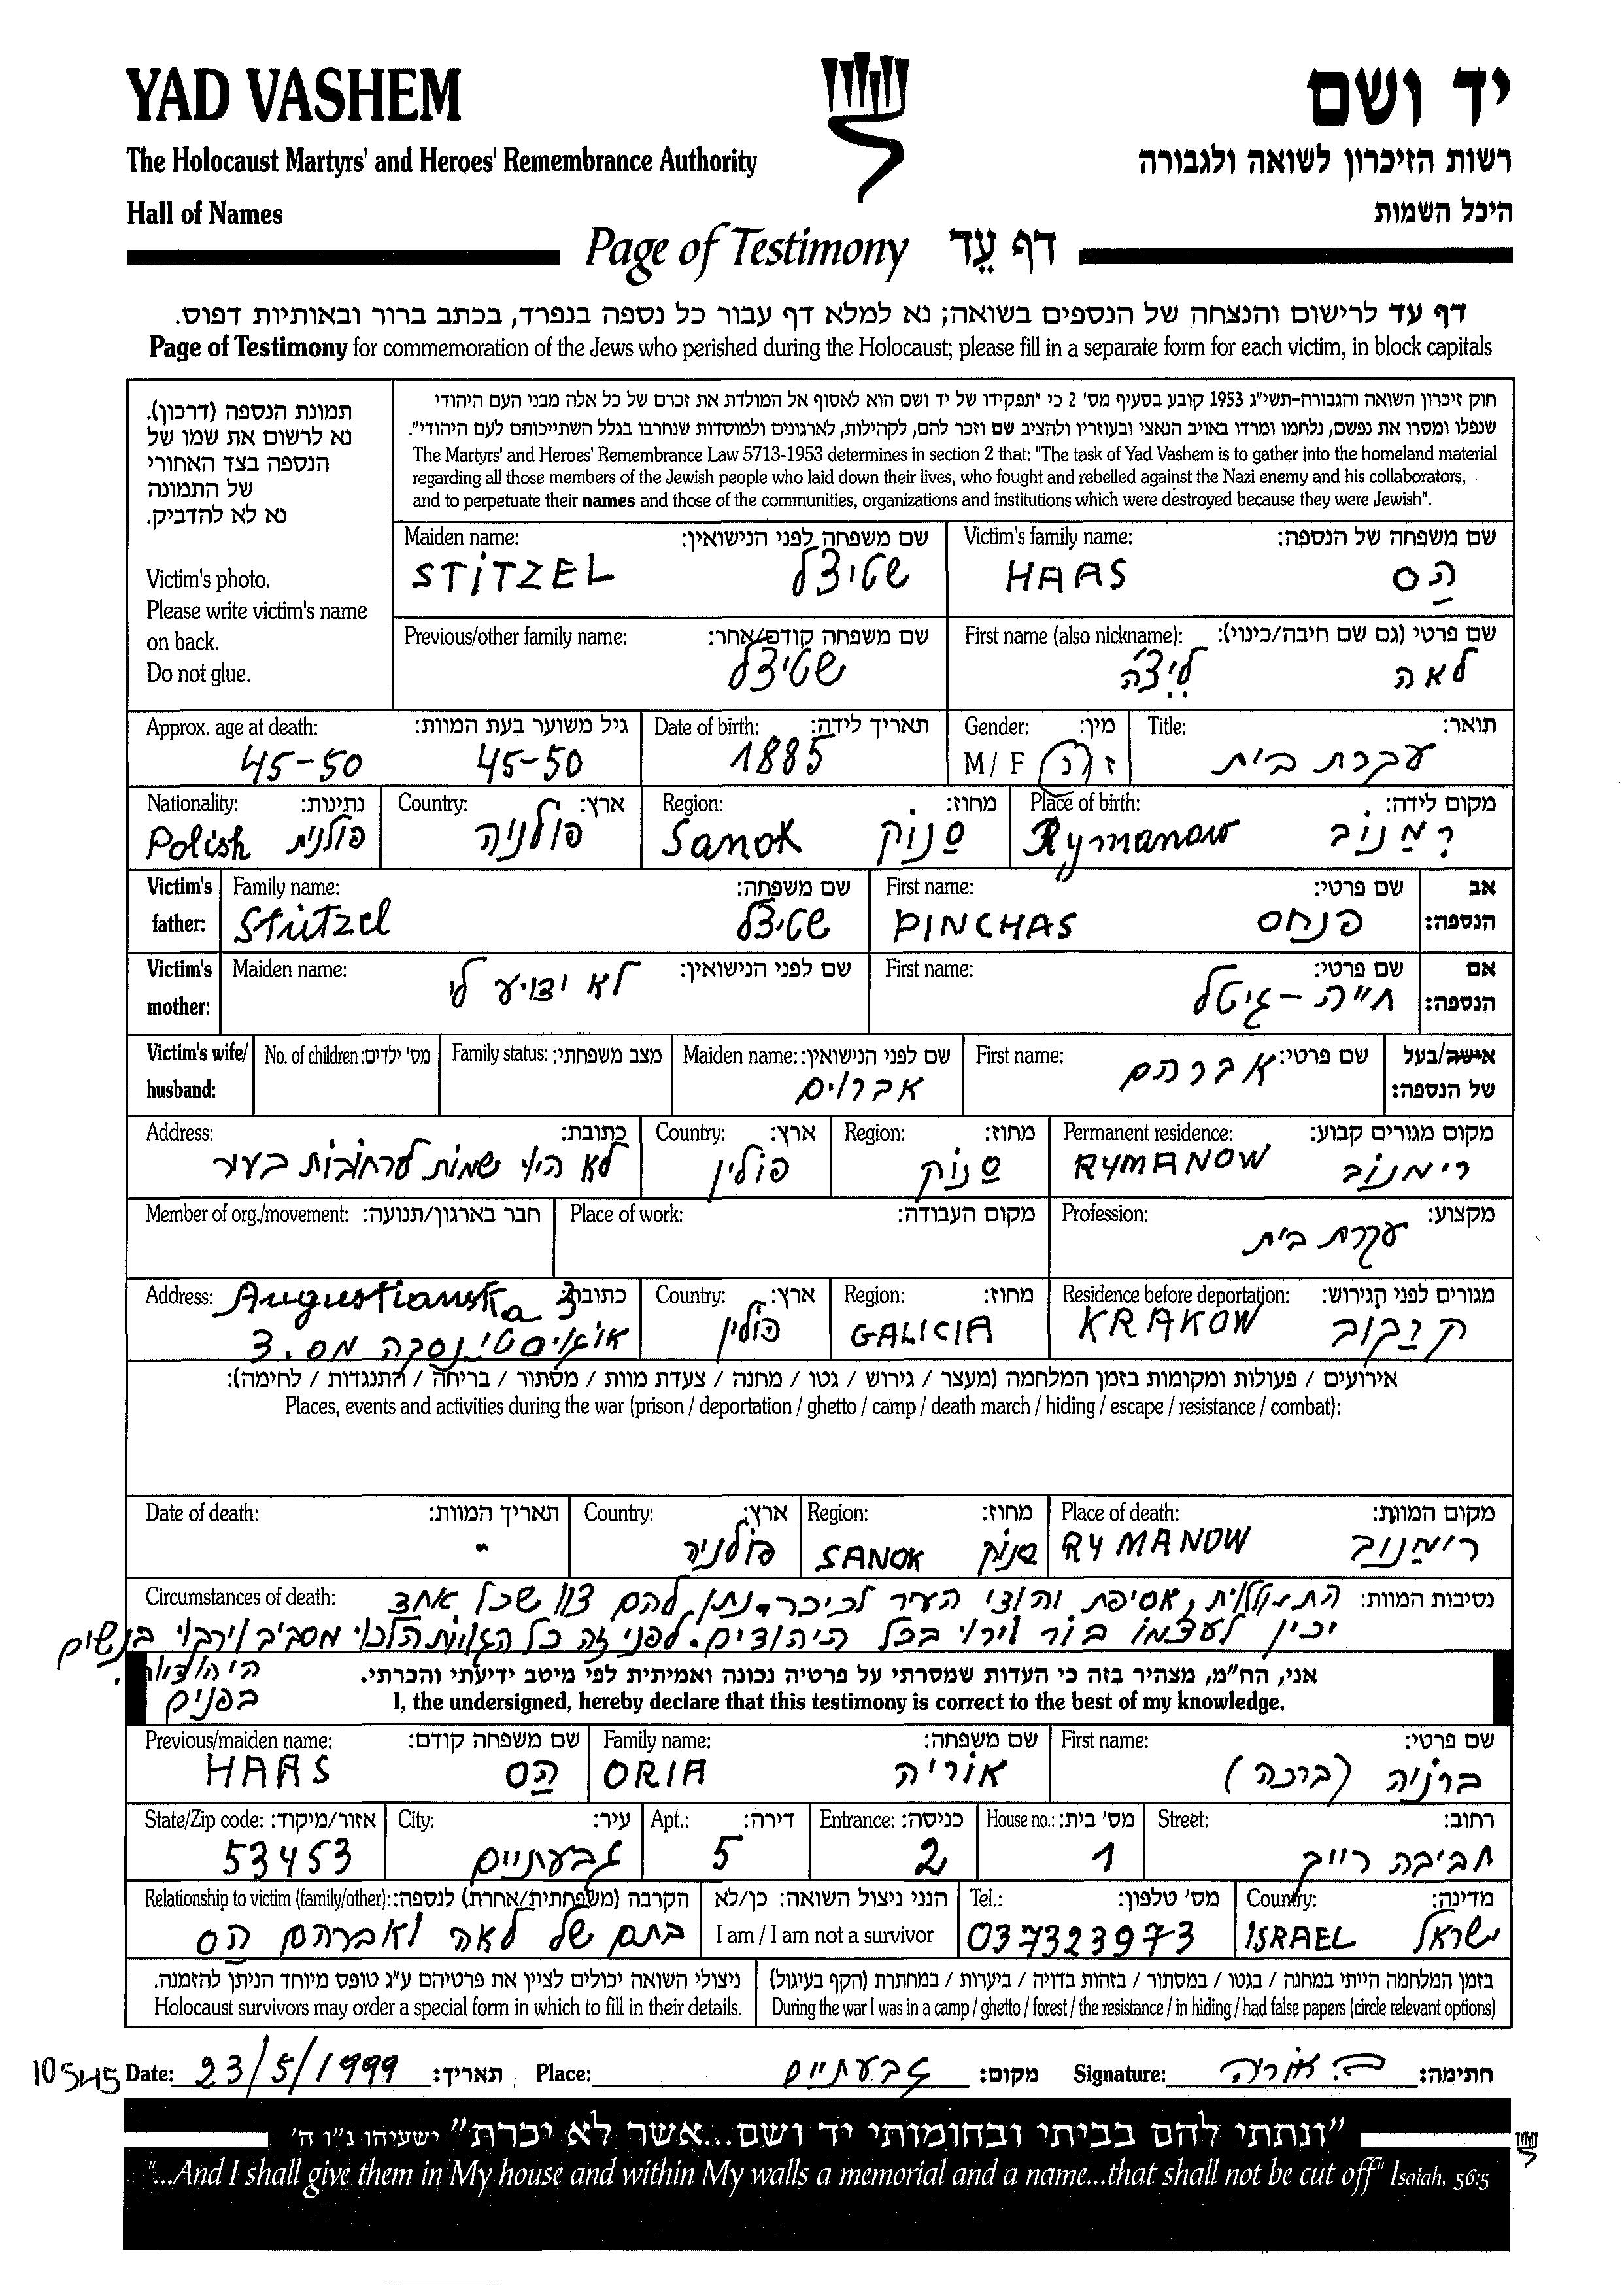 YAD VASHEM
יד ושם
The Holocaust Martyrs' and Heroes' Remembrance Authority
רשות הזיכרון לשואה ולגבורה
Hall of Names
היכל השמות
Page of Testimony דף עֵד
דף עד לרישום והנצחה של הנספים בשואה; נא למלא דף עבור כל נספה בנפרד, בכתב ברור ובאותיות דפוס.
Page of Testimony for commemoration of the Jews who perished during the Holocaust; please fill in a separate form for each victim, in block capitals
תמונת הנספה (דרכון).
נא לרשום את שמו של
הנספה בצד האחורי
של התמונה
נא לא להדביק.
Victim's photo.
Please write victim's name
on back.
Do not glue.
חוק זיכרון השואה והגבורה-תשי"ג 1953 קובע בסעיף מס' 2 כי "תפקידו של יד ושם הוא לאסוף אל המולדת את זכרם של כל אלה מבני העם היהודי
שנפלו ומסרו את נפשם, נלחמו ומרדו באויב הנאצי ובעוזריו ולהציב שם וזכר להם, לקהילות, לארגונים ולמוסדות שנחרבו בגלל השתייכותם לעם היהודי".
The Martyrs' and Heroes' Remembrance Law 5713-1953 determines in section 2 that: "The task of Yad Vashem is to gather into the homeland material
regarding all those members of the Jewish people who laid down their lives, who fought and rebelled against the Nazi enemy and his collaborators,
and to perpetuate their names and those of the communities, organizations and institutions which were destroyed because they were Jewish".
Maiden name: שם משפחה לפני הנישואין: Victim's family name: שם משפחה של הנספה:
STITZEL שטיצל HAAS הַס
Previous/other family name: שם משפחה קודם/אחר: First name (also nickname): שם פרטי (גם שם חיבה/כינוי):
שטיצל ליצ'ה לאה
Approx. age at death: גיל משוער בעת המוות: Date of birth: תאריך לידה: Gender: מין: Title: תואר:
45-50 45-50 1885 M / F ז / נ עקרת בית
Nationality: נתינות: Country: ארץ: Region: מחוז: Place of birth: מקום לידה:
Polish פולנית פולניה Sanok סַנוֹק Rymanow רִמַנוֹב
Victim's father: Family name: שם משפחה: First name: שם פרטי: אב הנספה:
Stitzel שטיצל PINCHAS פנחס
Victim's mother: Maiden name: שם לפני הנישואין: First name: שם פרטי: אם הנספה:
לא ידוע לי חייה-גיטל
Victim's wife/husband: No. of children: מס' ילדים: Family status: מצב משפחתי: Maiden name: שם לפני הנישואין: First name: שם פרטי: אישה/בעל של הנספה:
אברהם
Address: כתובת: Country: ארץ: Region: מחוז: Permanent residence: מקום מגורים קבוע:
לא היו שמות לרחובות בעיר פולין סַנוֹק RYMANOW רימנוֹב
Member of org./movement: חבר בארגון/תנועה: Place of work: מקום העבודה: Profession: מקצוע:
עקרת בית
Address: כתובת: Country: ארץ: Region: מחוז: Residence before deportation: מגורים לפני הגירוש:
Augustianska 3 פולין GALICIA KRAKOW קרקוב
מס. 3
אירועים / פעולות ומקומות בזמן המלחמה (מעצר / גירוש / גטו / מחנה / צעדת מוות / מסתור / בריחה / התנגדות / לחימה):
Places, events and activities during the war (prison / deportation / ghetto / camp / death march / hiding / escape / resistance / combat):
Date of death: תאריך המוות: Country: ארץ: Region: מחוז: Place of death: מקום המוות:
- פולניה SANOK סנוק RYMANOW רימַנוֹב
Circumstances of death: נסיבות המוות:
העיר לכיכר. נתן להם צוו שכל אחד
יכין לעצמו בור וירו בכל היהודים. לפני זה כל
בפנים
אני, הח"מ, מצהיר בזה כי העדות שמסרתי על פרטיה נכונה ואמיתית לפי מיטב ידיעתי והכרתי.
I, the undersigned, hereby declare that this testimony is correct to the best of my knowledge.
Previous/maiden name: שם משפחה קודם: Family name: שם משפחה: First name: שם פרטי:
HAAS הַס ORIA אוריה ברוֹניה (ברכה)
State/Zip code: אזור/מיקוד: City: עיר: Apt.: דירה: Entrance: כניסה: House no.: מס' בית: Street: רחוב:
53453 גבעתיים 5 2 1 חביבה רייך
Relationship to victim (family/other): הקרבה (משפחתית/אחרת) לנספה: הנני ניצול השואה: כן/לא Tel.: מס' טלפון: Country: מדינה:
בתם של לאה ואברהם הַס I am / I am not a survivor 037323973 ISRAEL ישראל
ניצולי השואה יכולים לציין את פרטיהם ע"ג טופס מיוחד הניתן להזמנה.
Holocaust survivors may order a special form in which to fill in their details.
בזמן המלחמה הייתי במחנה / בגטו / במסתור / בזהות בדויה / ביערות / במחתרת (הקף בעיגול)
During the war I was in a camp / ghetto / forest / the resistance / in hiding / had false papers (circle relevant options)
Date: 23/5/1999 תאריך: Place: גבעתיים מקום: Signature: ב. אוריה חתימה:
"ונתתי להם בביתי ובחומותי יד ושם...אשר לא יכרת" ישעיהו נ"ו ה'
"...And I shall give them in My house and within My walls a memorial and a name...that shall not be cut off" Isaiah, 56:5